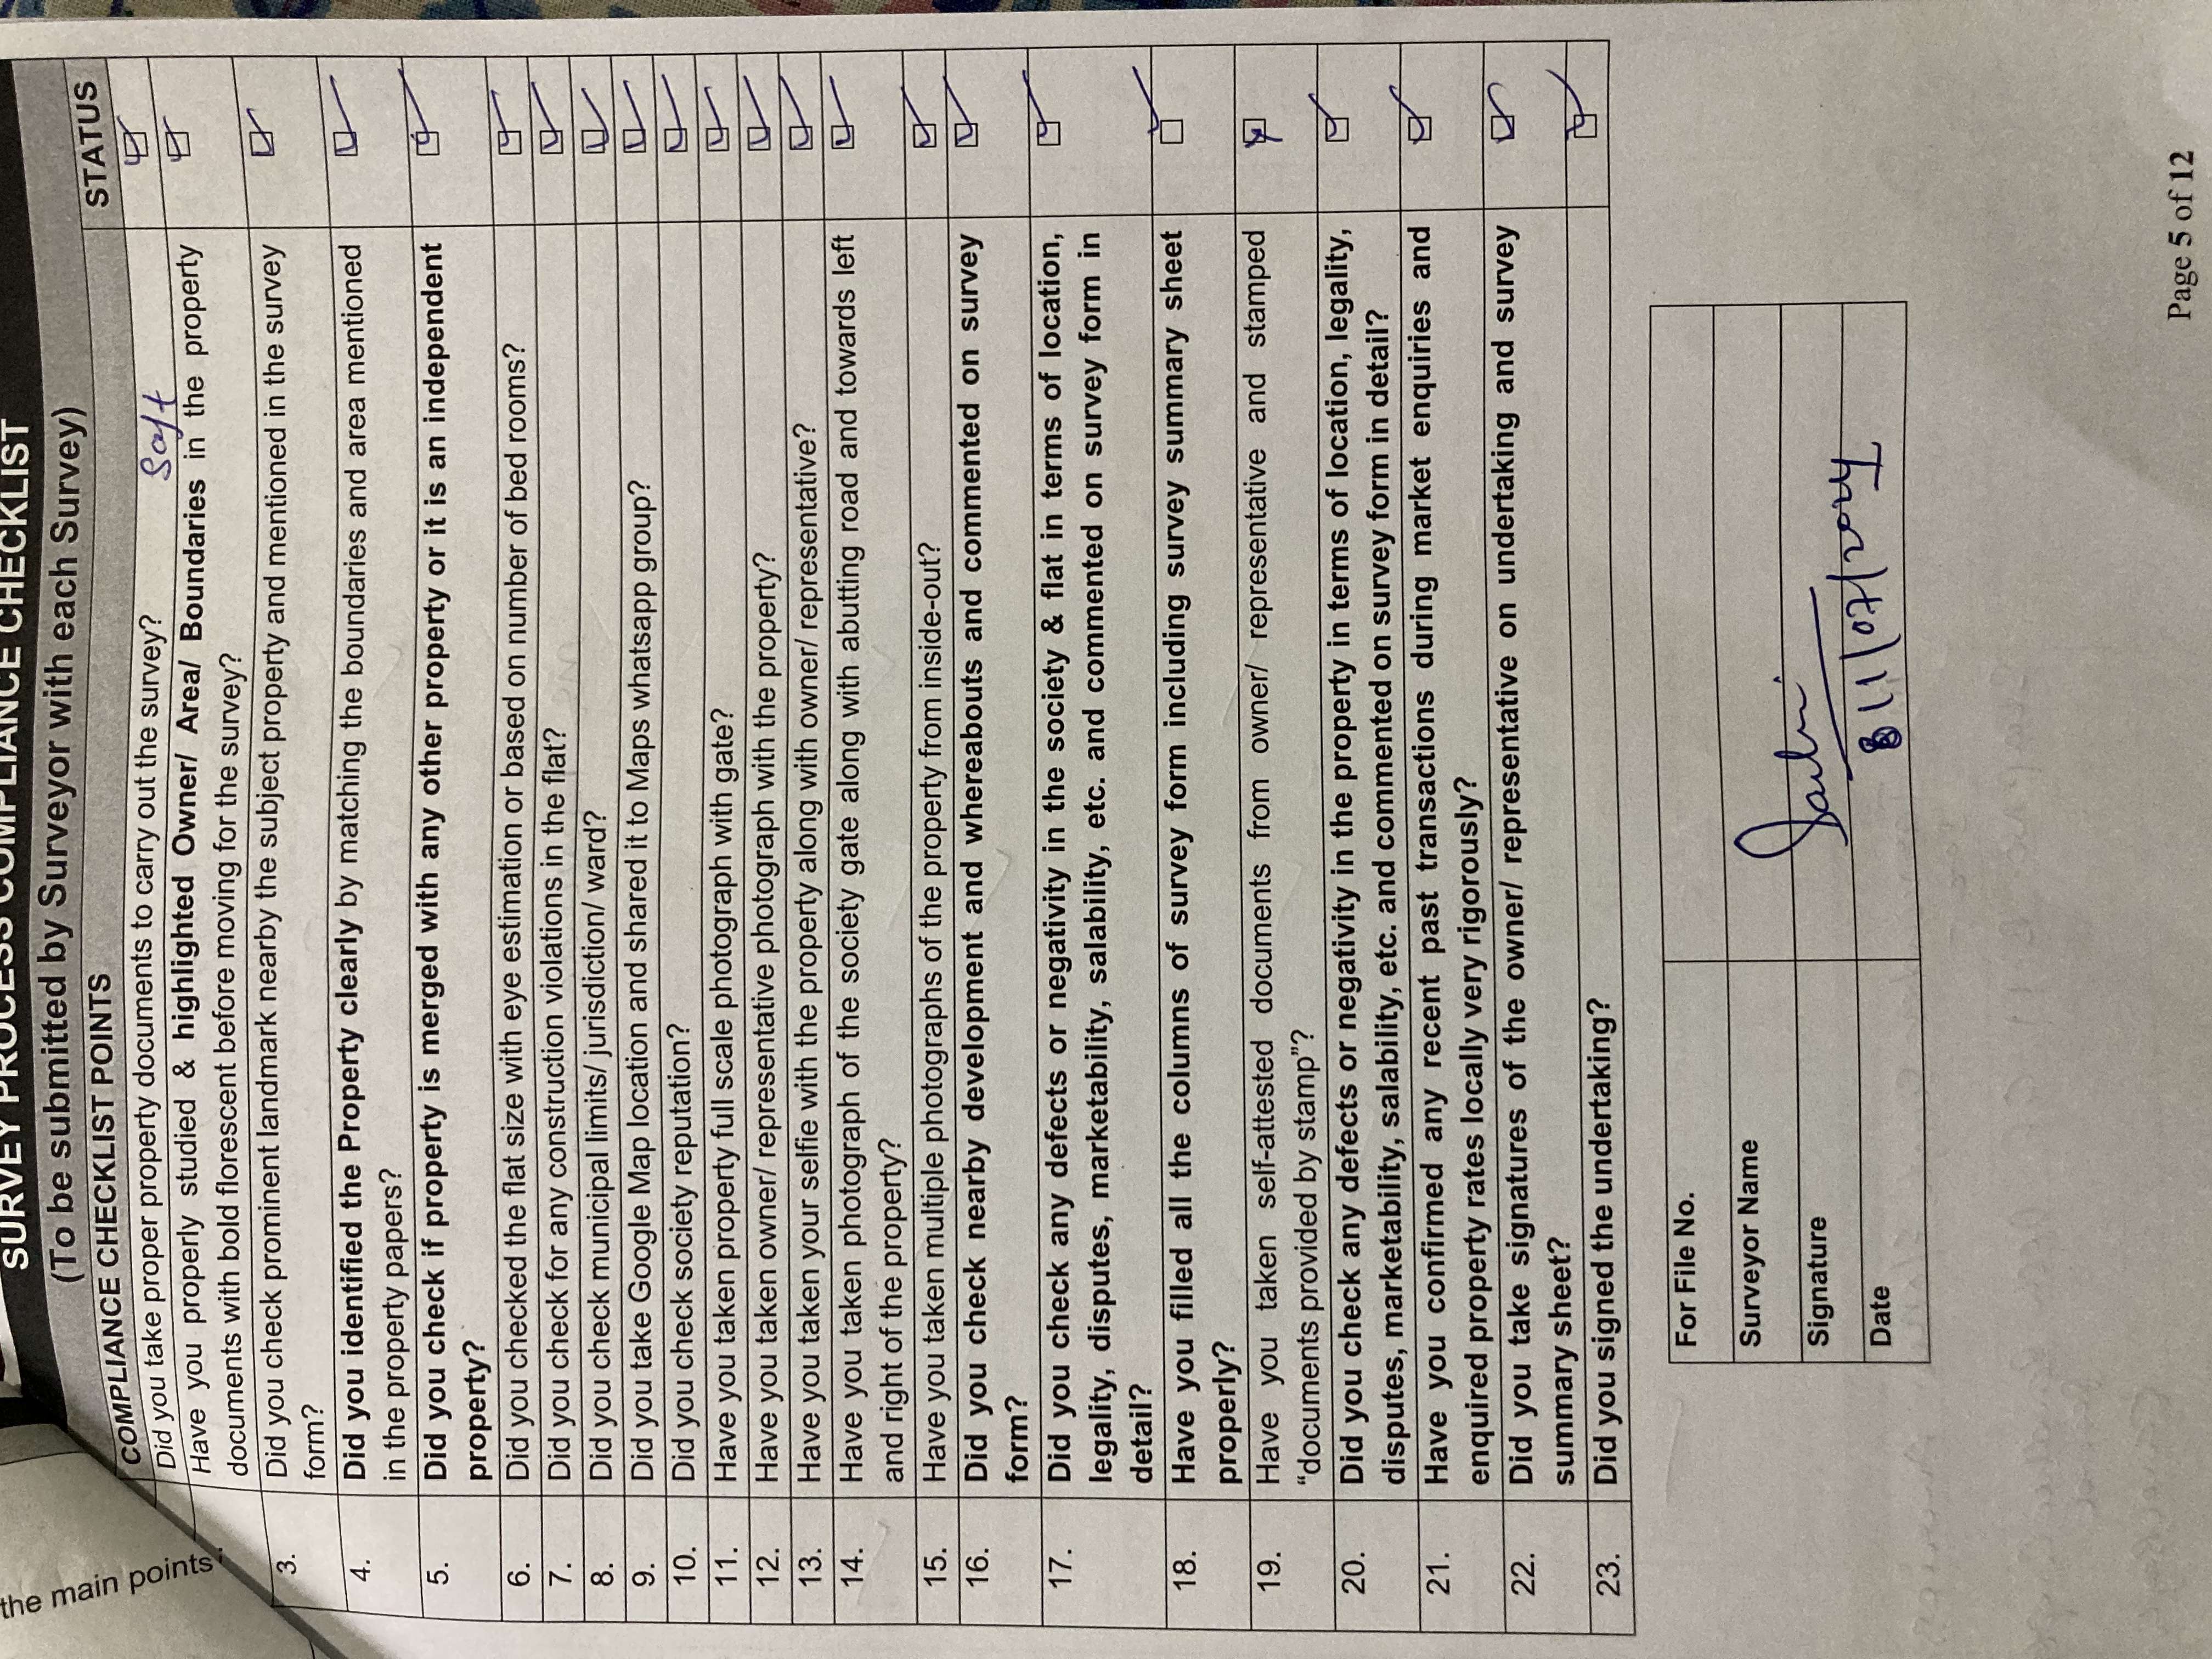 SURVEY PROCESS COMPLIANCE CHECKLIST
(To be submitted by Surveyor with each Survey)
COMPLIANCE CHECKLIST POINTS STATUS
Did you take proper property documents to carry out the survey? Soft
Have you properly studied & highlighted Owner/ Area/ Boundaries in the property
documents with bold florescent before moving for the survey?
3. Did you check prominent landmark nearby the subject property and mentioned in the survey
form?
4. Did you identified the Property clearly by matching the boundaries and area mentioned
in the property papers?
5. Did you check if property is merged with any other property or it is an independent
property?
6. Did you checked the flat size with eye estimation or based on number of bed rooms?
7. Did you check for any construction violations in the flat?
8. Did you check municipal limits/ jurisdiction/ ward?
9. Did you take Google Map location and shared it to Maps whatsapp group?
10. Did you check society reputation?
11. Have you taken property full scale photograph with gate?
12. Have you taken owner/ representative photograph with the property?
13. Have you taken your selfie with the property along with owner/ representative?
14. Have you taken photograph of the society gate along with abutting road and towards left
and right of the property?
15. Have you taken multiple photographs of the property from inside-out?
16. Did you check nearby development and whereabouts and commented on survey
form?
17. Did you check any defects or negativity in the society & flat in terms of location,
legality, disputes, marketability, salability, etc. and commented on survey form in
detail?
18. Have you filled all the columns of survey form including survey summary sheet
properly?
19. Have you taken self-attested documents from owner/ representative and stamped
“documents provided by stamp”?
20. Did you check any defects or negativity in the property in terms of location, legality,
disputes, marketability, salability, etc. and commented on survey form in detail?
21. Have you confirmed any recent past transactions during market enquiries and
enquired property rates locally very rigorously?
22. Did you take signatures of the owner/ representative on undertaking and survey
summary sheet?
23. Did you signed the undertaking?
For File No.
Surveyor Name
Signature
Date
Page 5 of 12
the main points